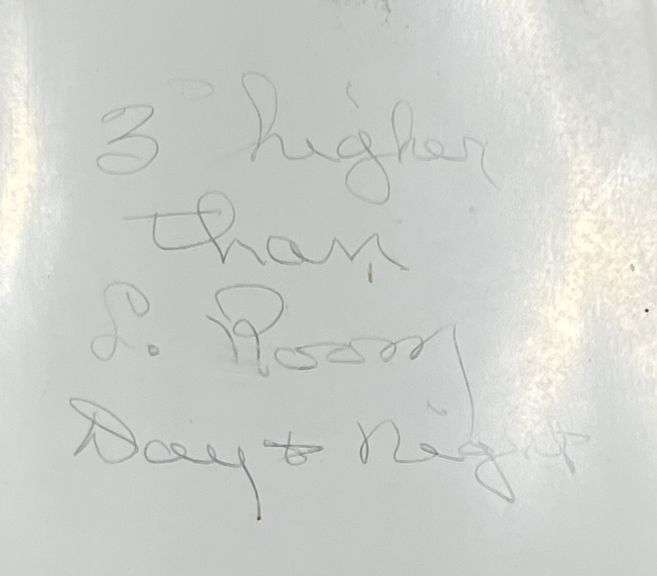 3° higher
than
L. Room
Day + Night